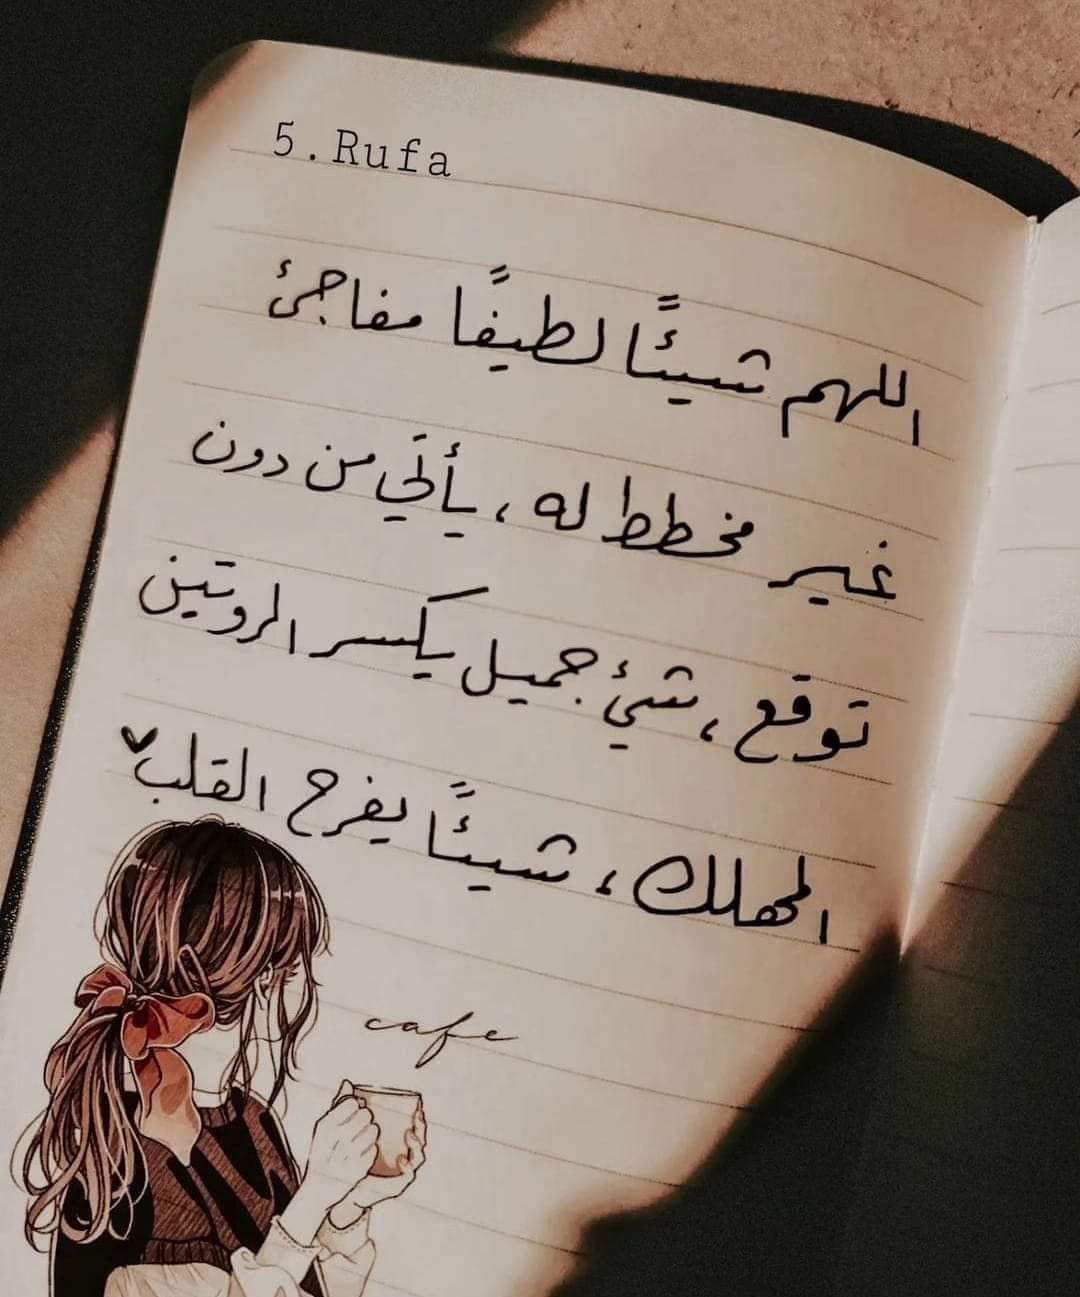 5.Rufa
اللهم شيئًا لطيفًا مفاجئ
غير مخطط له ، يأتي من دون
توقع ، شيئ جميل يكسر الروتين
المهلك ، شيئًا يفرح القلب
cafe